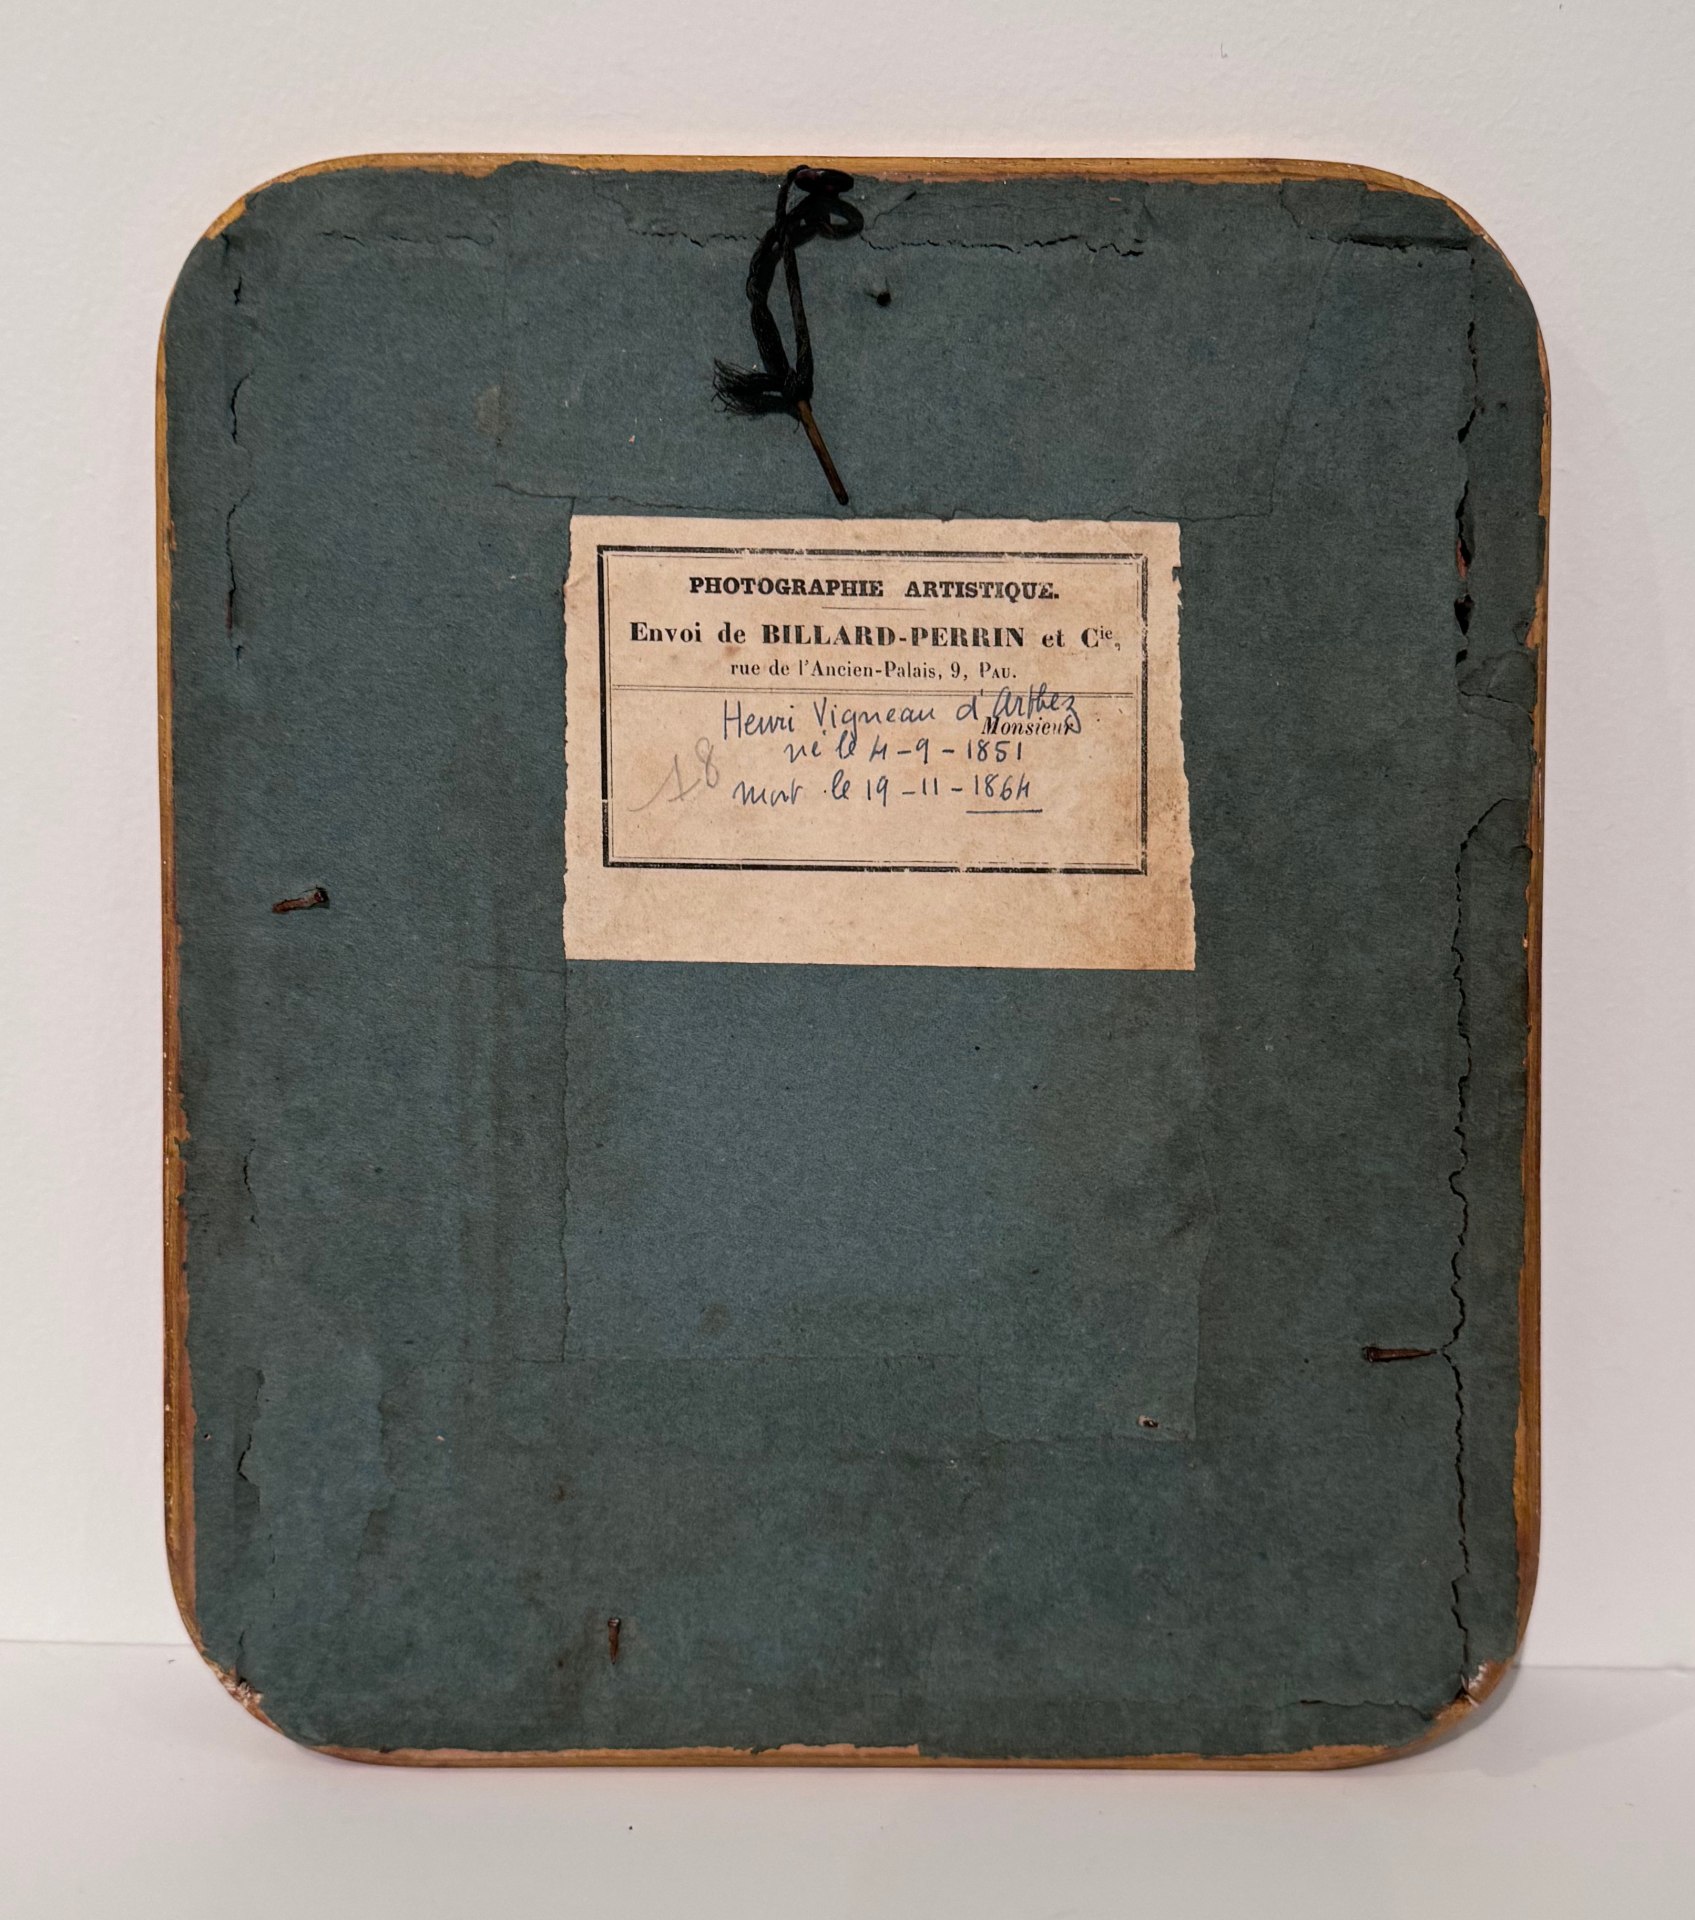 PHOTOGRAPHIE ARTISTIQUE.
Envoi de BILLARD-PERRIN et Cie,
rue de l'Ancien-Palais, 9, PAU.
Henri Vigneau d'Arthez
Monsieur
né le 4-9-1851
18
mort le 19-11-1864